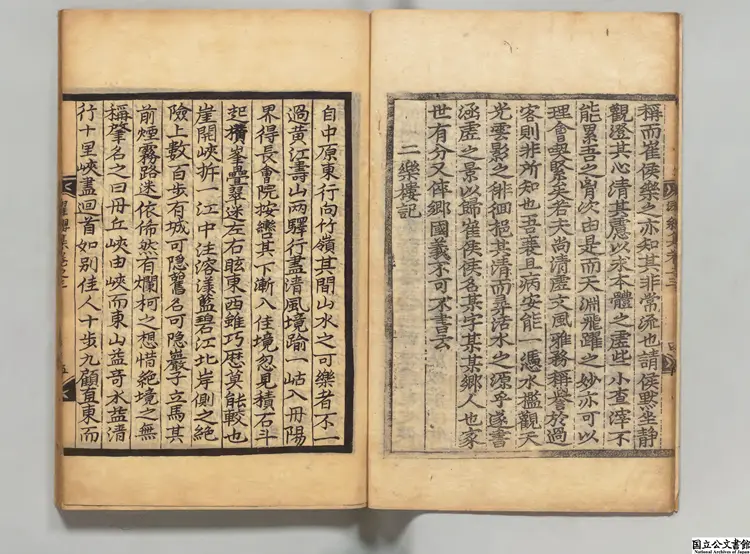 稱而崔侯樂之亦知其非常流也請侯默坐静
觀澄其心清其慮以求本體之虛此小查滓不
能累吾之胷次由是而天淵飛躍之妙亦可以
理會喫緊矣若夫尚清虛文風雅務稱譽於過
客則非所知也吾衰且病安能一憑水檻觀天
光雲影之徘徊挹其清而尋活水之源乎遂書
涵虛之景以歸崔侯侯名某字某某鄉人也家
世有分又倅鄉國義不可不書云
二樂樓記
自中原東行向竹嶺其間山水之可樂者不一
過黄江壽山兩驛行盡清風境踰一岵入丹陽
界得長會院按轡其下漸入佳境忽見積石斗
起攢峯疊翠迷左右眩東西雖巧曆莫能較也
崖開峽拆一江中注溶漾藍碧江北岸側之絶
險上數百步有城可隱舊名可隱巖子立馬其
前煙霧路迷依俙然有爛柯之想惜絶境之無
稱肇名之曰丹丘峽由峽而東山益奇水益清
行十里峽盡迴首如别佳人十步九顧直東而
五
国立公文書館
National Archives of Japan